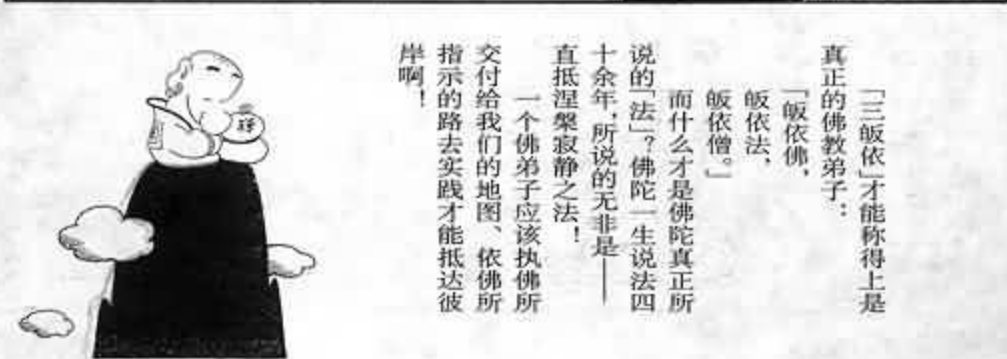 「三皈依」才能称得上是
真正的佛教弟子：
「皈依佛，
皈依法、
皈依僧。」
而什么才是佛陀真正所
说的「法」？佛陀一生说法四
十余年，所说的无非是——
直抵涅槃寂静之法！
一个佛弟子应该执佛所
交付给我们的地图、依佛所
指示的路去实践才能抵达彼
岸啊！